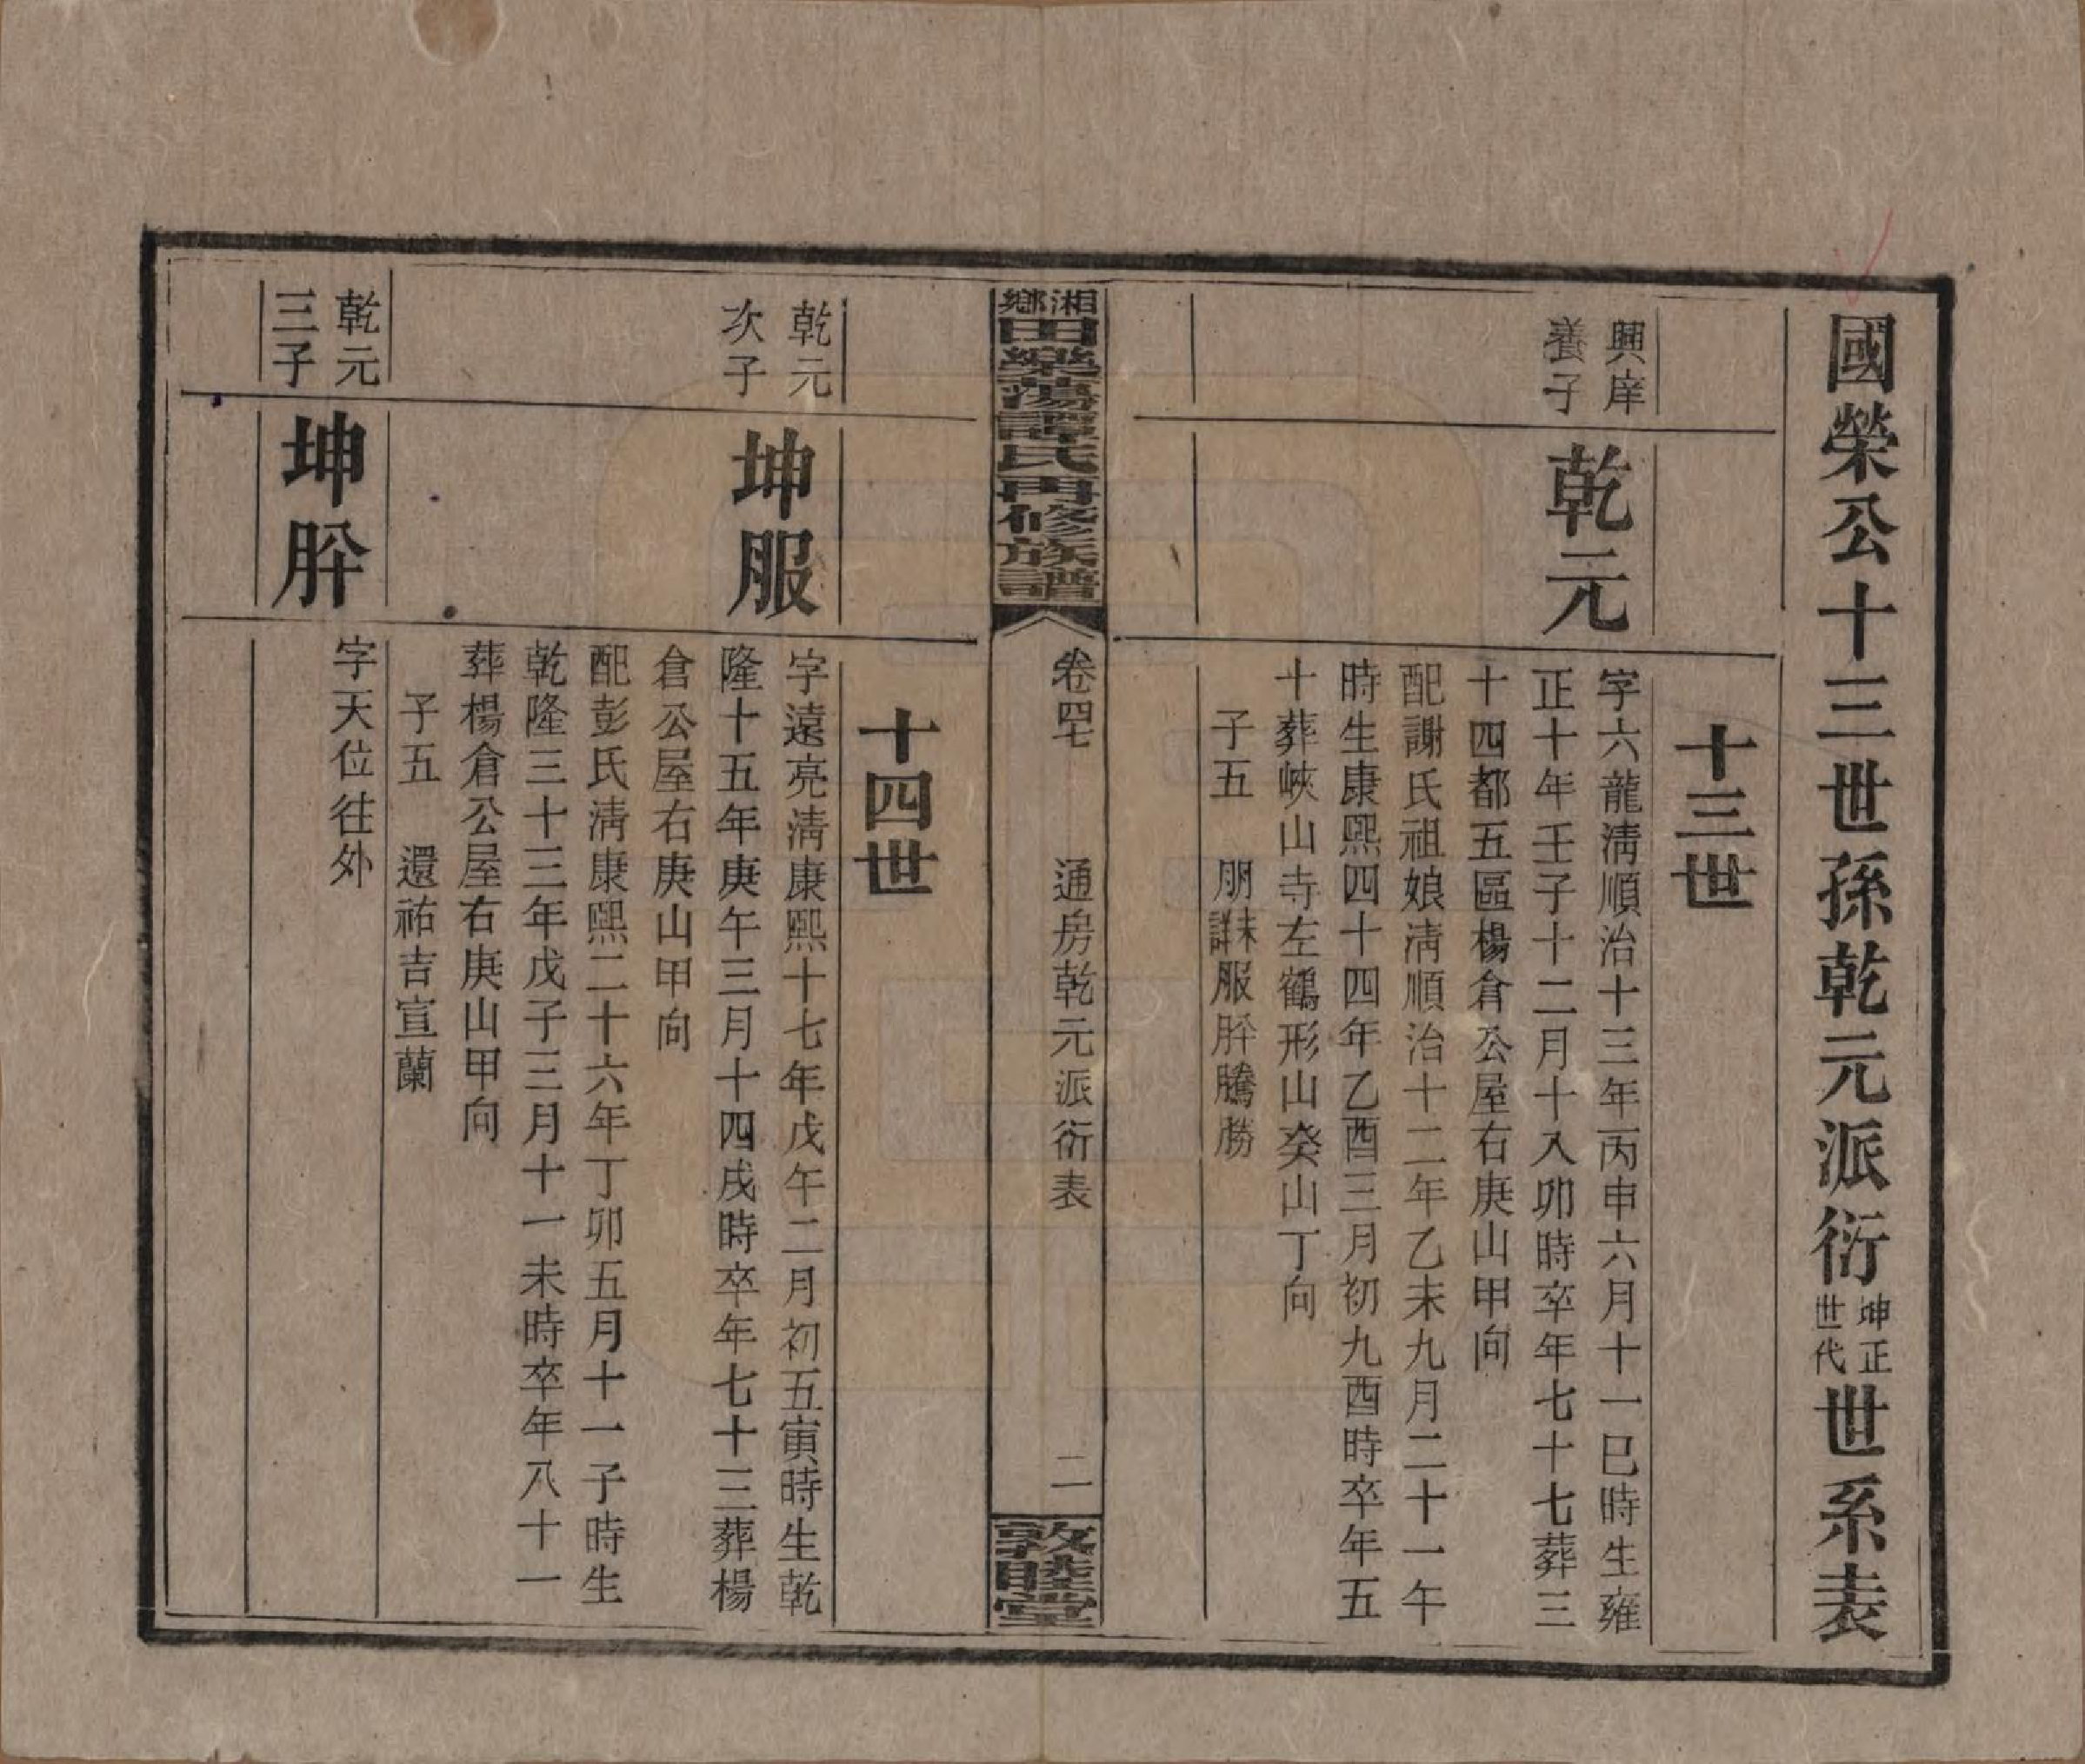 國榮公十三世孫乾元派衍坤正世代世系表
十三世
興庠
養子
乾元
字六龍淸順治十三年丙申六月十一巳時生雍
正十年壬子十二月十八卯時卒年七十七葬三
十四都五區楊倉公屋右庚山甲向
配謝氏祖娘淸順治十二年乙未九月二十一午
時生康熙四十四年乙酉三月初九酉時卒年五
十葬峽山寺左鶴形山癸山丁向
子五 朋未詳服肸騰勝
湘鄉田樂蕩譚氏再修族譜
卷四七 通房乾元派衍表 二
敦睦堂
十四世
乾元
次子
坤服
字遠亮淸康熙十七年戊午二月初五寅時生乾
隆十五年庚午三月十四戌時卒年七十三葬楊
倉公屋右庚山甲向
配彭氏淸康熙二十六年丁卯五月十一子時生
乾隆三十三年戊子三月十一未時卒年八十一
葬楊倉公屋右庚山甲向
子五 還祐吉宣蘭
乾元
三子
坤肸
字天位往外